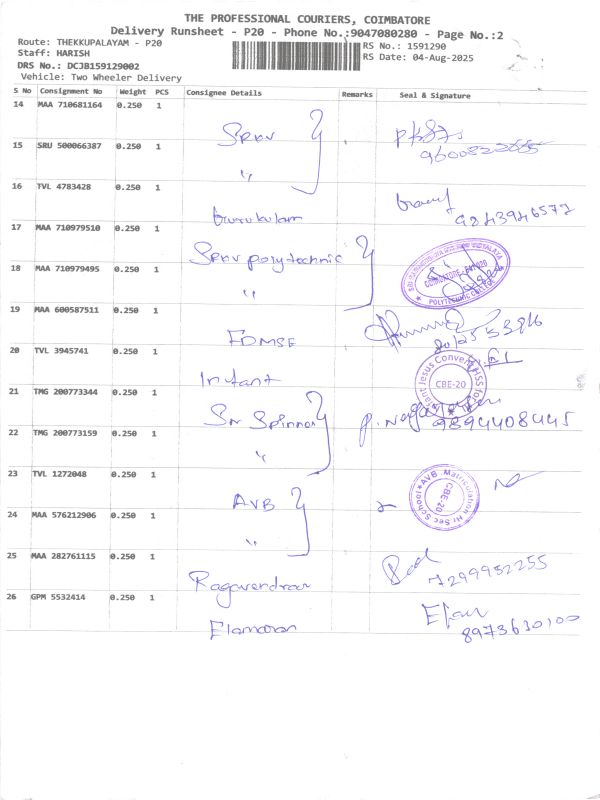 THE PROFESSIONAL COURIERS, COIMBATORE
Delivery Runsheet - P20 - Phone No.:9047080280 - Page No.:2
Route: THEKKUPALAYAM - P20
Staff: HARISH
RS No.: 1591290
DRS No.: DCJB159129002
RS Date: 04-Aug-2025
Vehicle: Two Wheeler Delivery
S No Consignment No Weight PCS Consignee Details Remarks Seal & Signature
14 MAA 710681164 0.250 1
SRKV
15 SRU 500066387 0.250 1
"
16 TVL 4783428 0.250 1
Gurukulam 9243946572
17 MAA 710979510 0.250 1
SRKV polytechnic
18 MAA 710979495 0.250 1
"
COIMBATORE - 641020
POLYTECHNIC COLLEGE
19 MAA 600587511 0.250 1
FDMSE
20 TVL 3945741 0.250 1
Infant
Infant Jesus Convent HSS
CBE-20
21 TMG 200773344 0.250 1
Sri Spinner 9894408445
22 TMG 200773159 0.250 1
"
23 TVL 1272048 0.250 1
AVB
AVB Matriculation Hr. Sec. School
CBE-20
24 MAA 576212906 0.250 1
"
25 MAA 282761115 0.250 1
Ragavendran 7299952255
26 GPM 5532414 0.250 1
Elamaran 8973630100